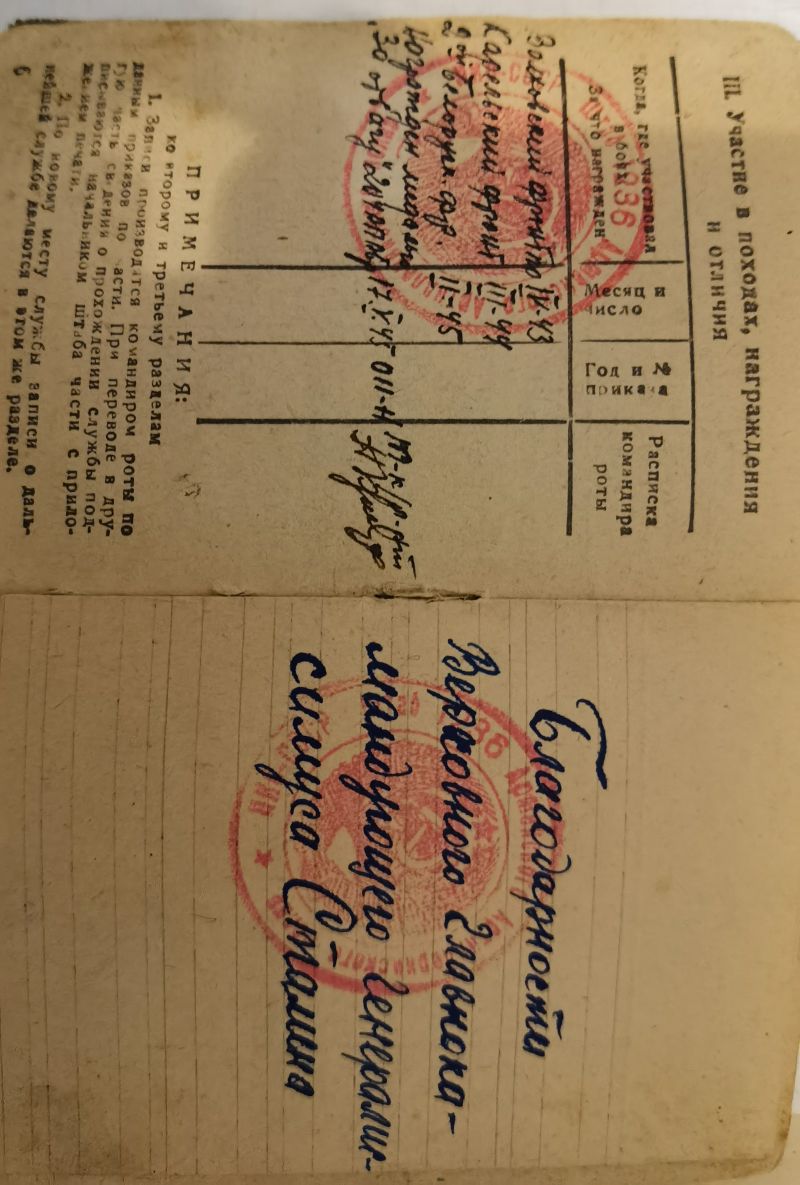 III. Участие в походах, награждения
и отличия
Когда, где участвовал
в боях
За что награжден
Месяц и
число
Год и №
приказа
Расписка
командира
роты
Волховский фронт IV-43
Карельский фронт III-44
2й Белорус. фр. II-45
Награжден медалью
"За отвагу" 17.V.45 011-Н
ПРИМЕЧАНИЯ:
ко второму и третьему разделам
1. Записи производятся командиром роты по
данным приказов по части. При переводе в дру-
гую часть сведения о прохождении службы под-
писываются начальником штаба части с прило-
жением печати.
2. По новому месту службы записи о даль-
нейшей службе делаются в этом же разделе.
6
Благодарности
Верховного Главнока-
мандующего Генералис-
симуса Сталина